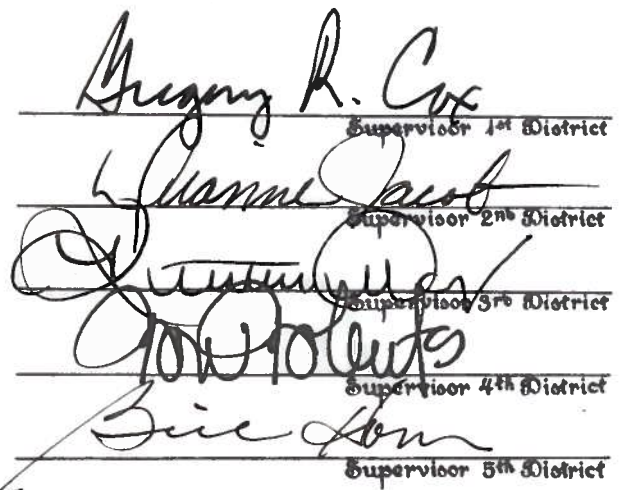 Gregory R. Cox
Supervisor 1st District
Dianne Jacob
Supervisor 2nd District
Supervisor 3rd District
Ron Roberts
Supervisor 4th District
Bill Horn
Supervisor 5th District